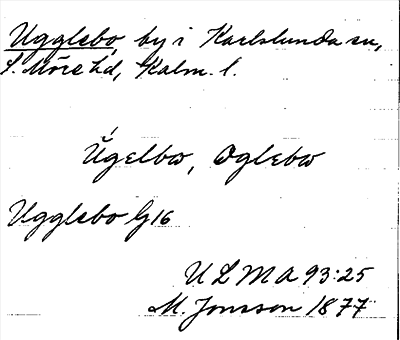 Ugglebo, by i Karlslunda sn,
S. Möre hd, Kalm. l.
Ŭ́gelbω, Oglebω
Ugglebo G16
ULMA 93:25
M. Jonsson 1877